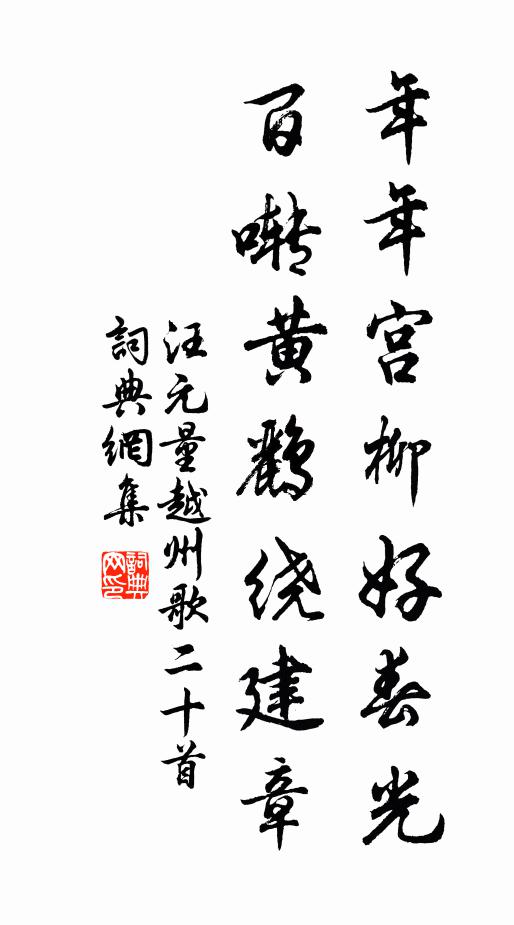 年年宫柳好春光
百啭黄鹂绕建章
汪元量越州歌二十首
詞典網集
詞典网印